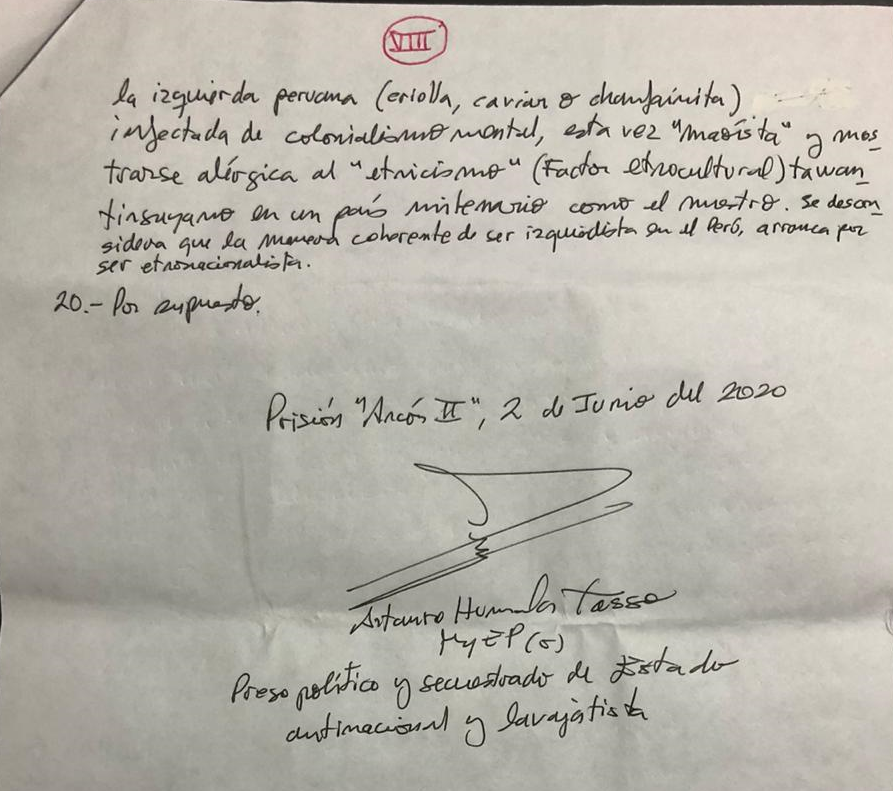 VIII
la izquierda peruana (criolla, caviar o chanfainita)
infectada de colonialismo mental, esta vez "maoísta" y mos_
trarse alérgica al "etnicismo" (Factor etnocultural) tawan_
tinsuyano en un país milenario como el nuestro. Se descon_
sidera que la manera coherente de ser izquierdista en el Perú, arranca por
ser etnonacionalista.
20.- Por supuesto.
Prisión "Ancón II", 2 de Junio del 2020
Antauro Humala Tasso
My EP (r)
Preso político y secuestrado de Estado
antinacional y lavajatista